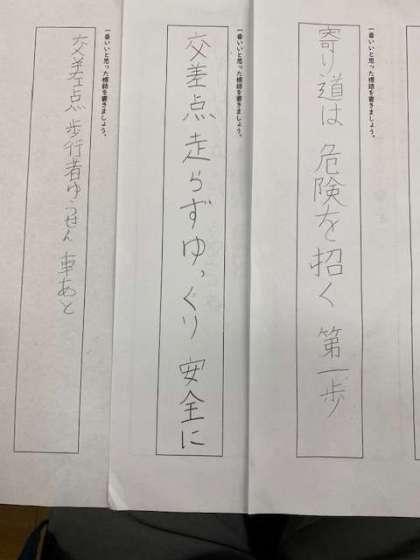 一番いいと思った標語を書きましょう。
寄り道は 危険を招く 第一歩
一番いいと思った標語を書きましょう。
交差点 走らずゆっくり 安全に
一番いいと思った標語を書きましょう。
交差点 歩行者ゆうせん 車あと